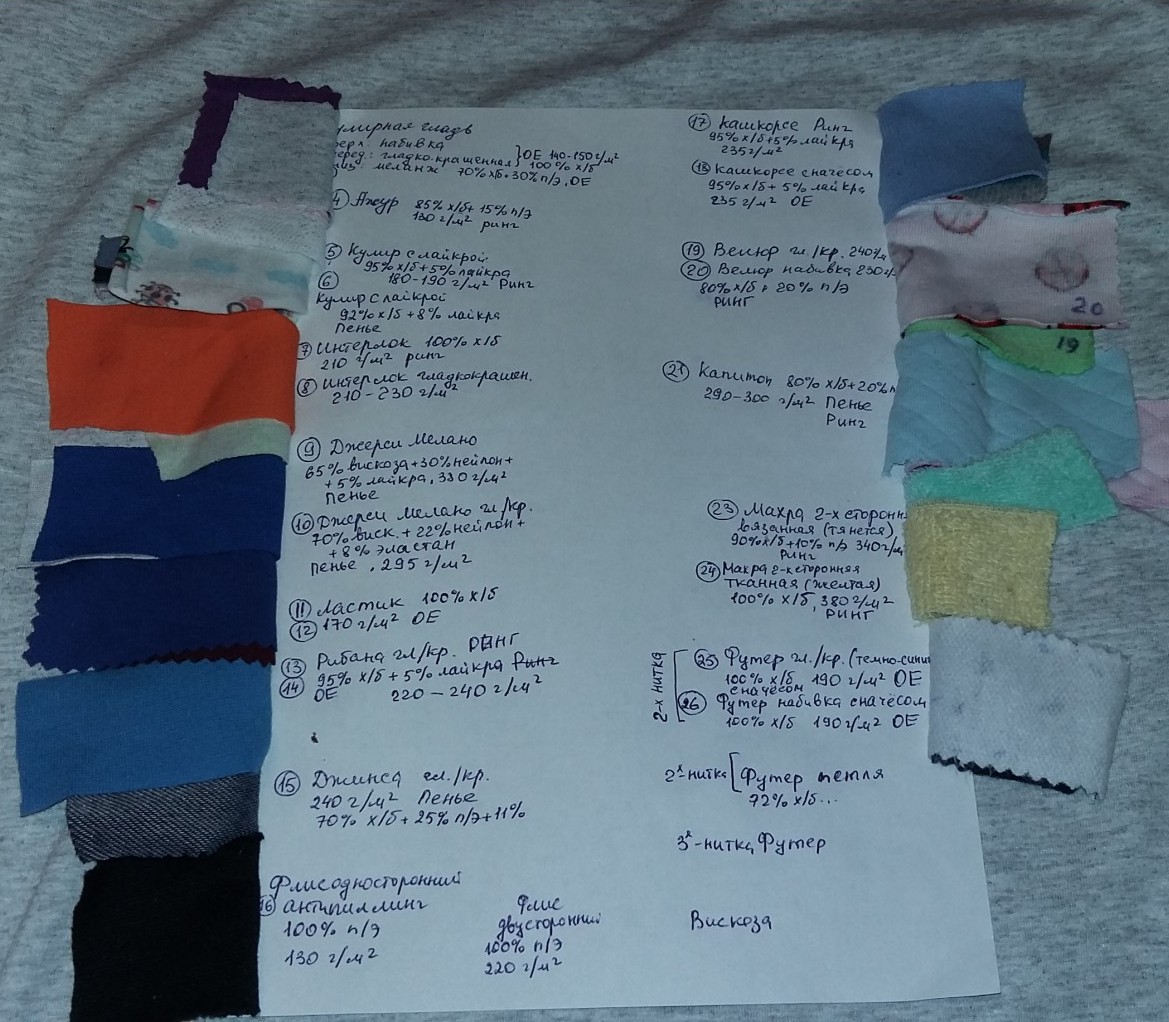 улирная гладь
верх. набивка
серед.: гладко.крашенная } ОЕ 140-150 г/м²
100% х/б
низ: меланж 70% х/б+30% п/э, ОЕ
4 Ажур 85% х/б+ 15% п/э
130 г/м² ринг
5 Кулир с лайкрой
95% х/б+5% лайкра
6 180-190 г/м² Ринг
Кулир с лайкрой
92% х/б +8% лайкра
Пенье
7 Интерлок 100% х/б
210 г/м² ринг
8 Интерлок гладкокрашен.
210-230 г/м²
9 Джерси Мелано
65% вискоза+30% нейлон+
+5% лайкра, 330 г/м²
Пенье
10 Джерси Мелано гл/кр.
70% виск. + 22% нейлон+
+8% эластан
Пенье, 295 г/м²
11 Ластик 100% х/б
12 170 г/м² ОЕ
13 Рибана гл/кр. РИНГ
95% х/б + 5% лайкра Ринг
14 ОЕ 220 – 240 г/м²
15 Джинса гл./кр.
240 г/м² Пенье
70% х/б + 25% п/э + 11%
Флис односторонний
16 антипиллинг
100% п/э
130 г/м²
Флис
двусторонний
100% п/э
220 г/м²
17 Кашкорсе Ринг
95% х/б+5% лайкра
235 г/м²
18 Кашкорсе сначёсом
95% х/б + 5% лайкра
235 г/м² ОЕ
19 Велюр гл./кр. 240 г/м
20 Велюр набивка 230 г/
80% х/б + 20% п/э
РИНГ
21 Капитон 80% х/б+20% п
290-300 г/м² Пенье
Ринг
23 Махра 2-х сторонн
вязанная (тянется)
90% х/б +10% п/э 340 г/м
Ринг
24 Махра 2-хсторонняя
тканная (желтая)
100% х/б, 380 г/м²
РИНГ
2-х нитка
25 Футер гл./кр. (темно-сини
100% х/б 190 г/м² ОЕ
сначёсом
26 Футер набивка сначёсом
100% х/б 190 г/м² ОЕ
2х-нитка [ Футер петля
72% х/б...
3х-нитка Футер
Вискоза
20
19